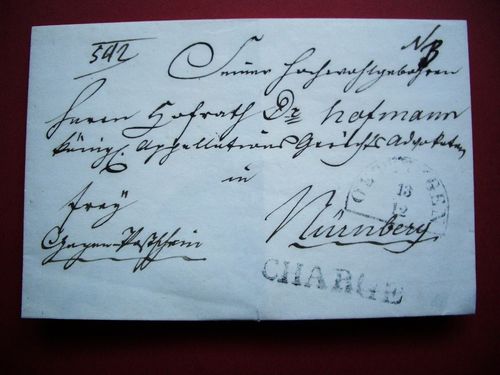 542
NB
Seiner Hochwohlgebohren
Herrn Hofrath Dr Hofmann
Königl. Appellations Gerichts Advokaten
in
frey
Nürnberg
13
12
Gegen Postschein
CHARGE